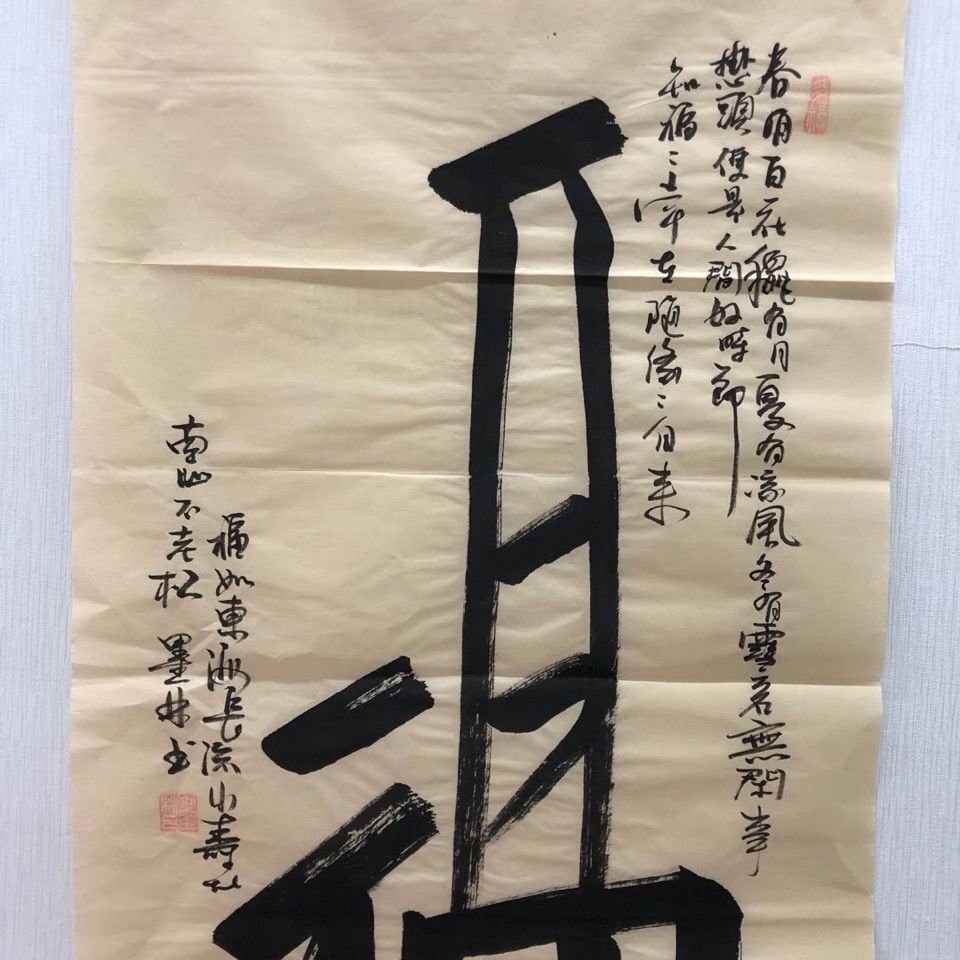 春有百花穐有月夏有涼風冬有雪若無閑事
掛心頭便是人間好時節
知福〻在隨緣〻自来
福如東海長流水壽比
南山不老松 墨林书